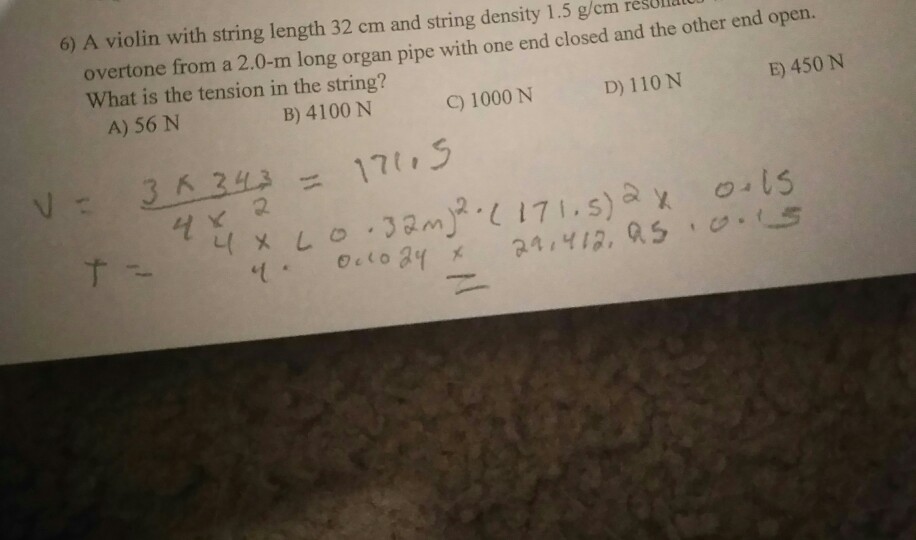 6) A violin with string length 32 cm and string density 1.5 g/cm
overtone from a 2.0-m long organ pipe with one end closed and the other end open.
What is the tension in the string?
A) 56 N B) 4100 N C) 1000 N D) 110 N E) 450 N
V = 3 x 343 / 4 x 2 = 171.5
T = 4 x (0.32m)²·(171.5)² x 0.15
4. 0.1024 x 29,412.25 . 0.15
=